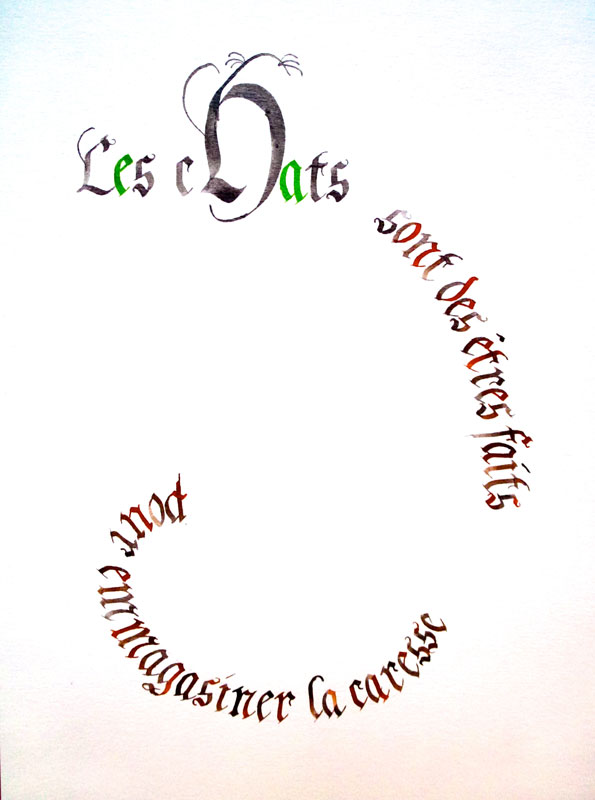 Les cHats
sont des êtres faits
pour emmagasiner la caresse